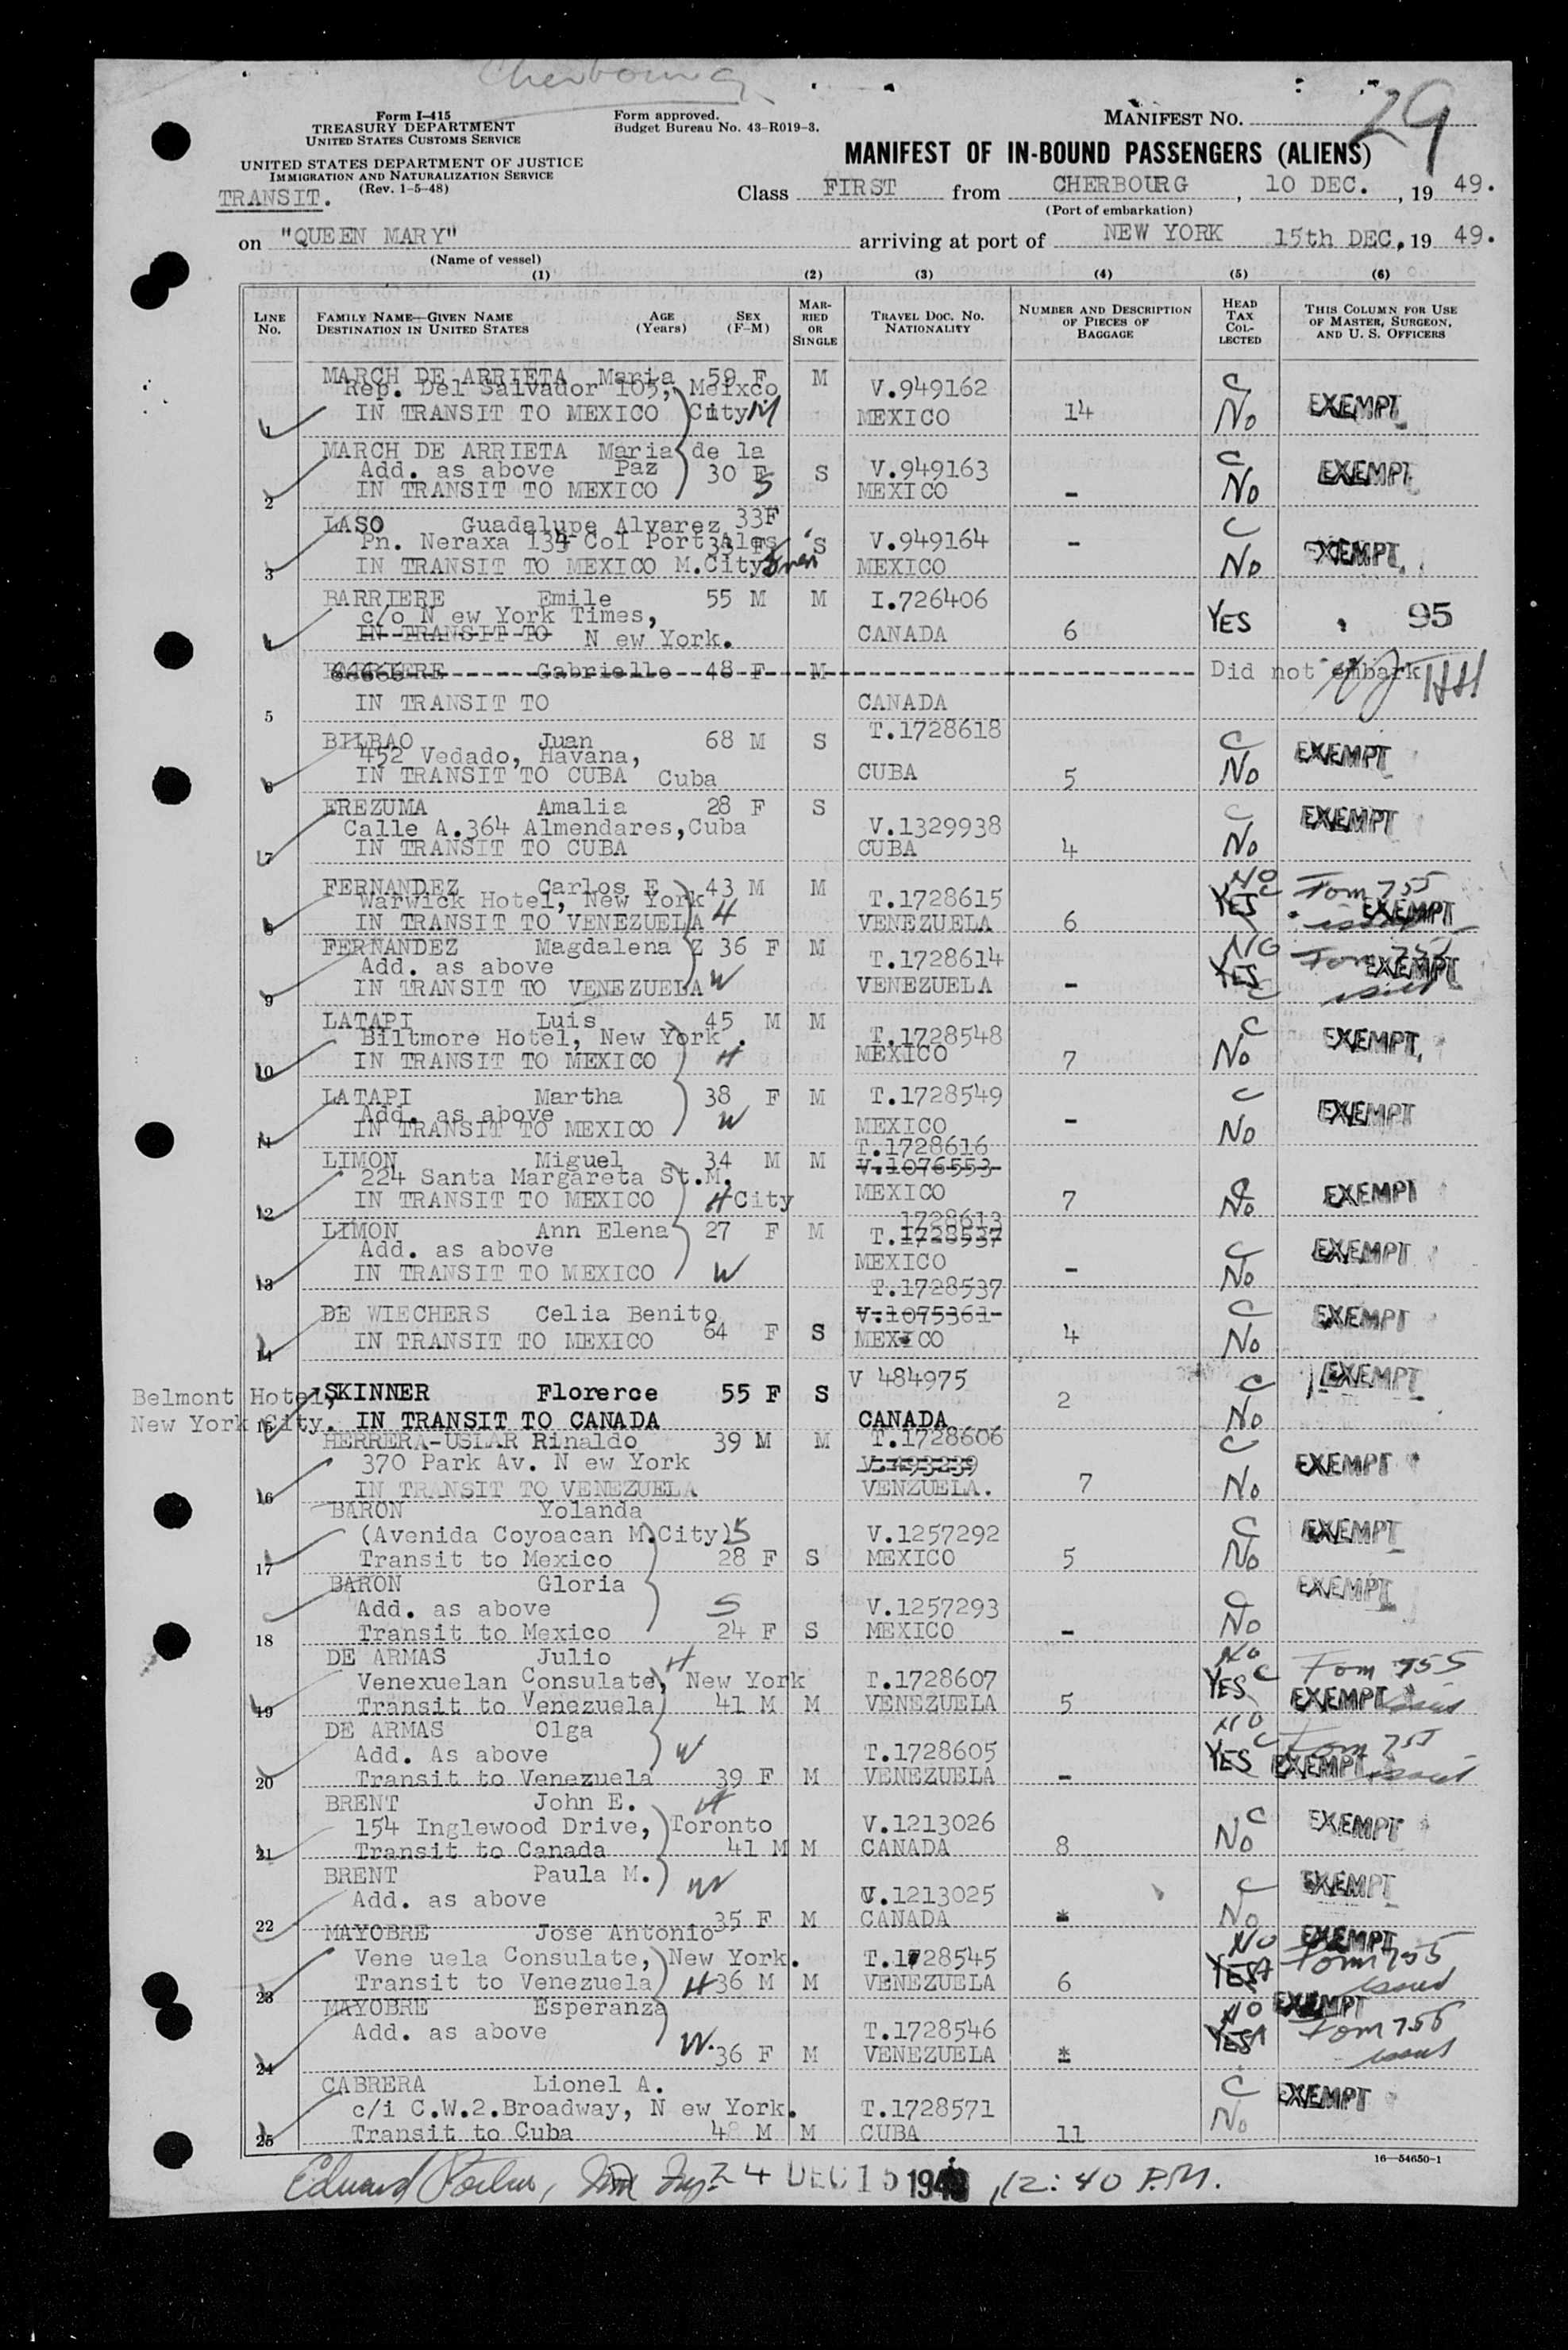 Cherbourg
29
Form I-415
TREASURY DEPARTMENT
UNITED STATES CUSTOMS SERVICE
UNITED STATES DEPARTMENT OF JUSTICE
IMMIGRATION AND NATURALIZATION SERVICE
(Rev. 1-5-48)
TRANSIT.
Form approved.
Budget Bureau No. 43-R019-3.
MANIFEST NO.
MANIFEST OF IN-BOUND PASSENGERS (ALIENS)
Class FIRST from CHERBOURG, 10 DEC., 19 49.
(Port of embarkation)
on "QUEEN MARY" arriving at port of NEW YORK 15th DEC, 19 49.
(Name of vessel)
(1) (2) (3) (4) (5) (6)
LINE NO.
FAMILY NAME—GIVEN NAME
DESTINATION IN UNITED STATES
AGE (Years)
SEX (F-M)
MARRIED OR SINGLE
TRAVEL DOC. NO. NATIONALITY
NUMBER AND DESCRIPTION OF PIECES OF BAGGAGE
HEAD TAX COLLECTED
THIS COLUMN FOR USE OF MASTER, SURGEON, AND U. S. OFFICERS
MARCH DE ARRIETA Maria 59 F M
Rep. Del Salvador 105, Meixco V.949162 C
1 IN TRANSIT TO MEXICO City M MEXICO 14 No EXEMPT
MARCH DE ARRIETA Maria de la C
Add. as above Paz 30 F S V.949163 EXEMPT
2 IN TRANSIT TO MEXICO S MEXICO - No
LASO Guadalupe Alvarez 33F C
Pn. Neraxa 134 Col Port Ales 33 F S V.949164 -
3 IN TRANSIT TO MEXICO M.City MEXICO No EXEMPT
BARRIERE Emile 55 M M I.726406
c/o N ew York Times, YES 95
4 IN TRANSIT TO N ew York. CANADA 6
Gabrielle 48 F M Did not embark
5 IN TRANSIT TO CANADA
BILBAO Juan 68 M S T.1728618 C
452 Vedado, Havana, EXEMPT
6 IN TRANSIT TO CUBA Cuba CUBA 5 No
EREZUMA Amalia 28 F S C EXEMPT
Calle A.364 Almendares,Cuba V.1329938
7 IN TRANSIT TO CUBA CUBA 4 No
FERNANDEZ Carlos E 43 M M NO Form 755
Warwick Hotel, New York T.1728615 YES C
8 IN TRANSIT TO VENEZUELA H VENEZUELA 6 issued EXEMPT
FERNANDEZ Magdalena Z 36 F M NO Form 755
Add. as above T.1728614 YES EXEMPT
9 IN TRANSIT TO VENEZUELA W VENEZUELA - C issued
LATAPI Luis 45 M M C
Biltmore Hotel, New York . T.1728548 EXEMPT
10 IN TRANSIT TO MEXICO H MEXICO 7 No
LATAPI Martha 38 F M T.1728549 C
Add. as above W EXEMPT
11 IN TRANSIT TO MEXICO MEXICO - No
T.1728616
LIMON Miguel 34 M M V.1076553
224 Santa Margareta St.M. C
12 IN TRANSIT TO MEXICO H City MEXICO 7 No EXEMPT
1728613
LIMON Ann Elena 27 F M T.1728537
Add. as above MEXICO C EXEMPT
13 IN TRANSIT TO MEXICO W - No
T.1728537
DE WIECHERS Celia Benito V.1075361 C EXEMPT
14 IN TRANSIT TO MEXICO 64 F S MEXICO 4 No
V 484975 EXEMPT
Belmont Hotel, SKINNER Florerce 55 F S 2 C
New York City. 15 IN TRANSIT TO CANADA CANADA No
HERRERA-USLAR Rinaldo 39 M M T.1728606 C
370 Park Av. N ew York V.493239 EXEMPT
16 IN TRANSIT TO VENEZUELA VENZUELA. 7 No
BARON Yolanda
(Avenida Coyoacan M.City) S V.1257292 C EXEMPT
17 Transit to Mexico 28 F S MEXICO 5 No
BARON Gloria EXEMPT
Add. as above S V.1257293 C
18 Transit to Mexico 24 F S MEXICO - No
DE ARMAS Julio H No
Venexuelan Consulate, New York T.1728607 YES C Form 755
19 Transit to Venezuela 41 M M VENEZUELA 5 EXEMPT issued
DE ARMAS Olga NO
Add. As above W T.1728605 YES C Form 755
20 Transit to Venezuela 39 F M VENEZUELA - EXEMPT issued
BRENT John E. H
154 Inglewood Drive, Toronto V.1213026 C EXEMPT
21 Transit to Canada 41 M M CANADA 8 No
BRENT Paula M. W
Add. as above V.1213025 C EXEMPT
22 35 F M CANADA No
MAYOBRE Jose Antonio NO EXEMPT
Vene uela Consulate, New York. T.1728545 YES Form 755
23 Transit to Venezuela H 36 M M VENEZUELA 6 issued
MAYOBRE Esperanza NO EXEMPT
Add. as above T.1728546 YES Form 755
24 W. 36 F M VENEZUELA issued
CABRERA Lionel A. C EXEMPT
c/i C.W.2.Broadway, N ew York. T.1728571 No
25 Transit to Cuba 48 M M CUBA 11
16—54650-1
Edward 24 DEC 15 1949, 12:40 P.M.